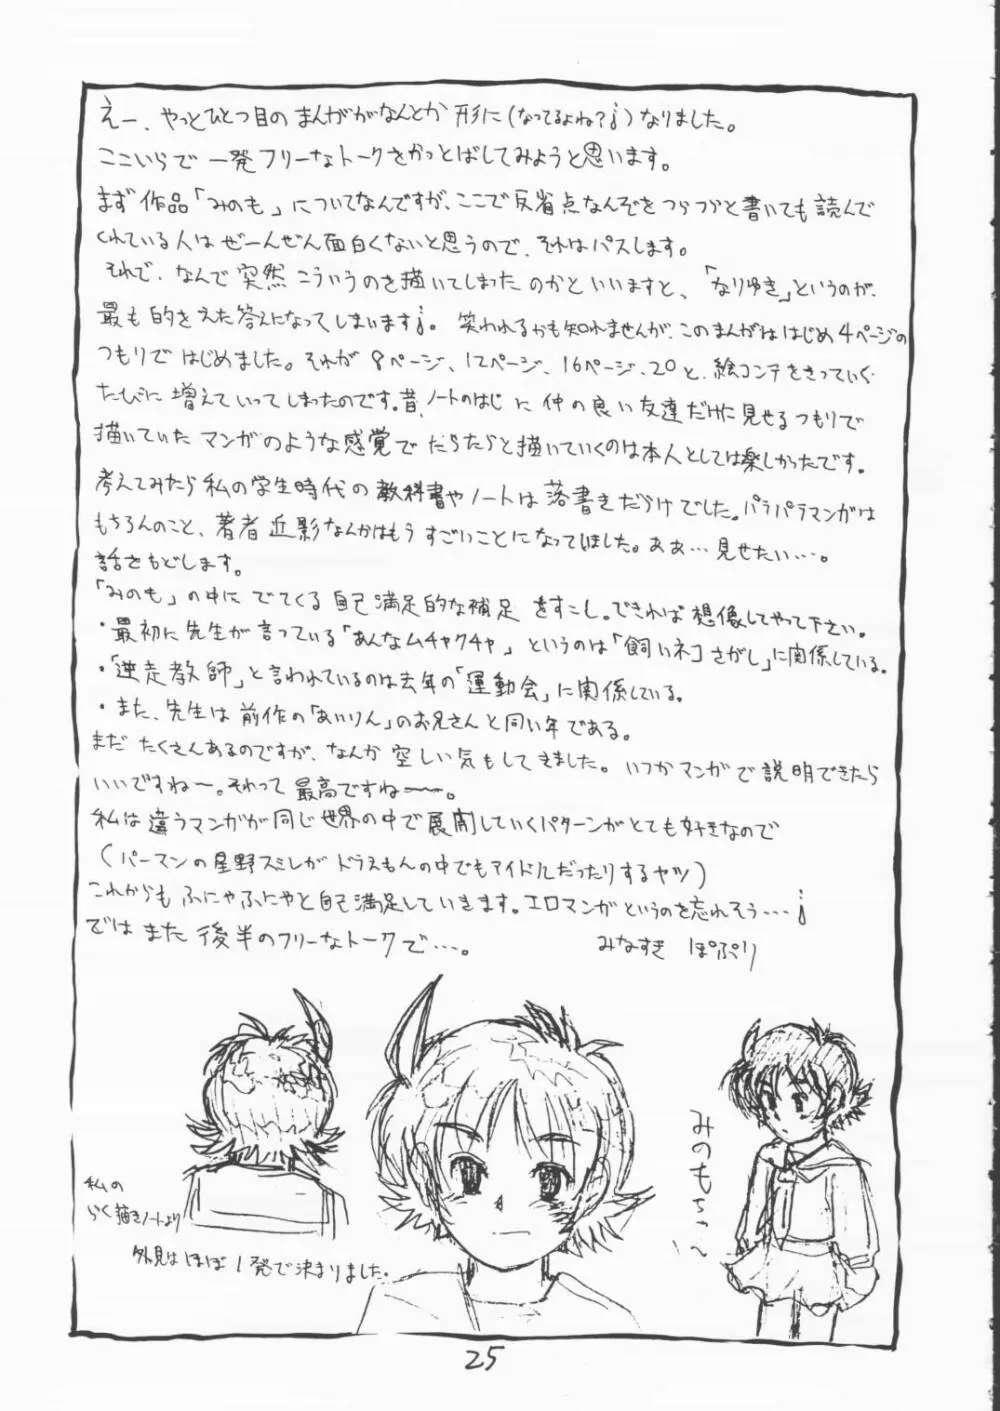 えー、やっとひとつ目のまんががなんとか形に(なってるよね?!)なりました。
ここいらで一発フリーなトークをかっとばしてみようと思います。
まず作品「みのも」についてなんですが、ここで反省点なんぞをつらつかと書いても読んで
くれている人はぜーんぜん面白くないと思うので、それはパスします。
それで、なんで突然こういうのを描いてしまったのかといいますと、「なりゆき」というのが、
最も的をえた答えになってしまいます!。笑われるかも知れませんが、このまんがははじめ4ページの
つもりではじめました。それが8ページ、12ページ、16ページ、20と、絵コンテをきっていく
たびに増えていってしまったのです。昔、ノートのはじに仲の良い友達だけに見せるつもりで
描いていたマンガのような感覚でだらだらと描いていくのは本人としては楽しかったです。
考えてみたら私の学生時代の教科書やノートは落書きだらけでした。パラパラマンガは
もちろんのこと、著者近影なんかはもうすごいことになってしました。ああ…見せたい…。
話をもどします。
「みのも」の中にでてくる自己満足的な補足をすこし。できれば想像してやって下さい。
・最初に先生が言っている「あんなムチャクチャ」というのは「飼いネコさがし」に関係している。
・「逆走教師」と言われているのは去年の「運動会」に関係している。
・また、先生は前作の「あいりん」のお兄さんと同い年である。
まだたくさんあるのですが、なんか空しい気もしてきました。いつかマンガで説明できたら
いいですねー。それって最高ですね〜。
私は違うマンガが同じ世界の中で展開していくパターンがとても好きなので
(パーマンの星野スミレがドラえもんの中でもアイドルだったりするヤツ)
これからもふにゃふにゃと自己満足していきます。エロマンガというのを忘れそう…!
ではまた後半のフリーなトークで…。
みなずき ぽぷり
私の
らく描きノートより
外見はほぼ1発で決まりました。
みのもちゃ〜ん
25